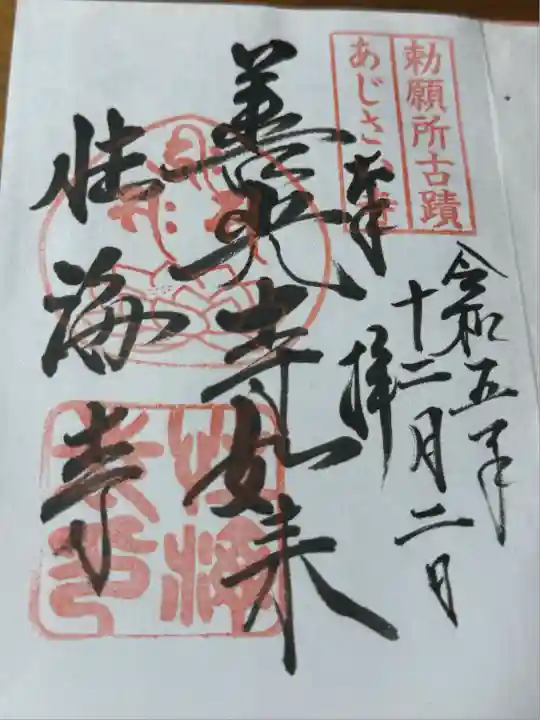 勅願所古蹟
あじさい寺
令和五年
十二月二日
奉拝
善光寺如来
性海寺